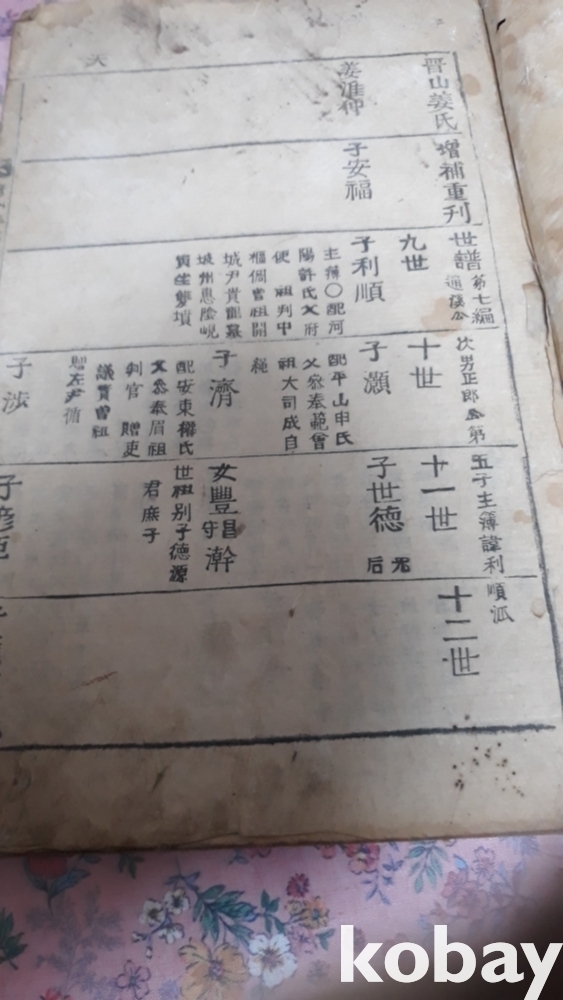 晋山姜氏增補重刊世譜
第七編
通溪公
次男正郎公第
五子主簿諱利
順派
姜淮仲
子安福
九世
子利順
主簿○配河
陽許氏父府
使 祖判中
樞 曾祖開
城尹貴龍墓
坡州惠陰峴
坐雙墳
十世
子灝
配平山申氏
父參奉範曾
祖大司成自
繩
子濟
配安東權氏
父參奉眉祖
判官 贈吏
議質曾祖
贈左尹侑
子涉
十一世
子世德
无
后
女豐
昌
守
澣
世祖別子德源
君庶子
子諺
十二世
kobay